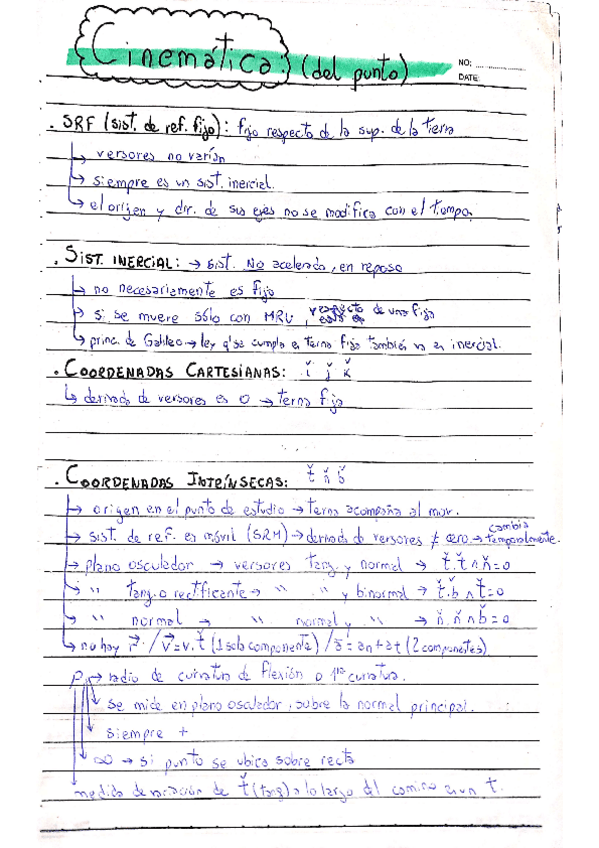 Cinemática: (del punto)
NO:
DATE:
. SRF (sist. de ref. fijo): fijo respecto de la sup. de la tierra
↳ versores no varían
↳ siempre es un sist. inercial.
↳ el origen y dir. de sus ejes no se modifica con el tiempo.
. SIST. INERCIAL: → sist. No acelerado, en reposo
↳ no necesariamente es fijo
↳ si se mueve sólo con MRU, respecto de una fija
↳ princ. de Galileo → ley q' se cumpla en terna fija también va en inercial.
. COORDENADAS CARTESIANAS: ǐ ǰ ǩ
↳ derivada de versores es 0 → terna fija
. COORDENADAS INTRÍNSECAS:ť ň b̌
↳ origen en el punto de estudio → terna acompaña al mov.
↳ sist. de ref. es móvil (SRM) → derivada de versores ≠ cero. → cambia temporalmente.
↳ plano osculador → versores tang. y normal → ť . ť ∧ ň = 0
↳ " tang. o rectificante → " " y binormal → ť . b̌ ∧ ť = 0
↳ " normal → " normal y " → ň . ň ∧ b̌ = 0
↳ no hay r⃗ / v⃗ = v. ť (1 sola componente) / a⃗ = an + at (2 componentes)
ρ → radio de curvatura de flexión o 1ra curvatura.
↳ se mide en plano osculador, sobre la normal principal.
siempre +
∞ → si punto se ubica sobre recta
medida de variación de ť (tang) a lo largo del camino en un t.